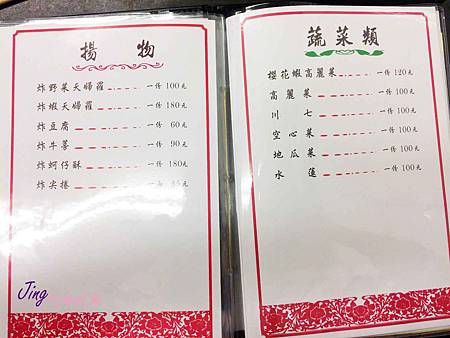 揚物
炸野菜天婦羅 一份 100元
炸蝦天婦羅 一份 180元
炸豆腐 一份 60元
炸牛蒡 一份 90元
炸蚵仔酥 一份 180元
炸尖捲 一份
蔬菜類
櫻花蝦高麗菜 一份 120元
高麗菜 一份 100元
川七 一份 100元
空心菜 一份 100元
地瓜菜 一份 100元
水蓮 一份 100元
Jing